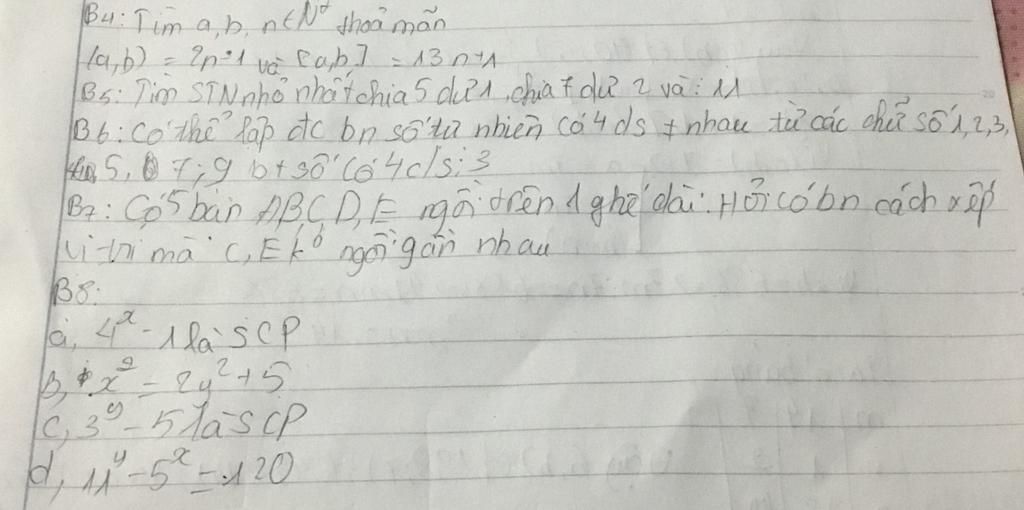 B4: Tìm a, b, n ∈ N* thoả mãn
(a,b) = 2n+1 và [a,b] = 13n+1
B5: Tìm STN nhỏ nhất chia 5 dư 1, chia 7 dư 2 và ⋮ 11
B6: Có thể lập đc bn số tự nhiên có 4 c/s ≠ nhau từ các chữ số 1, 2, 3,
5, 7; 9 b+ số có 4 c/s ⋮ 3
B7: Có 5 bạn A, B, C, D, E ngồi trên 1 ghế dài. Hỏi có bn cách xếp
vị trí mà C, E kó ngồi gần nhau
B8:
a, 4ˣ - 1 là SCP
b, x² = 2y² + 5
c, 3ʸ - 5 là SCP
d, 11ʸ - 5ˣ = 120